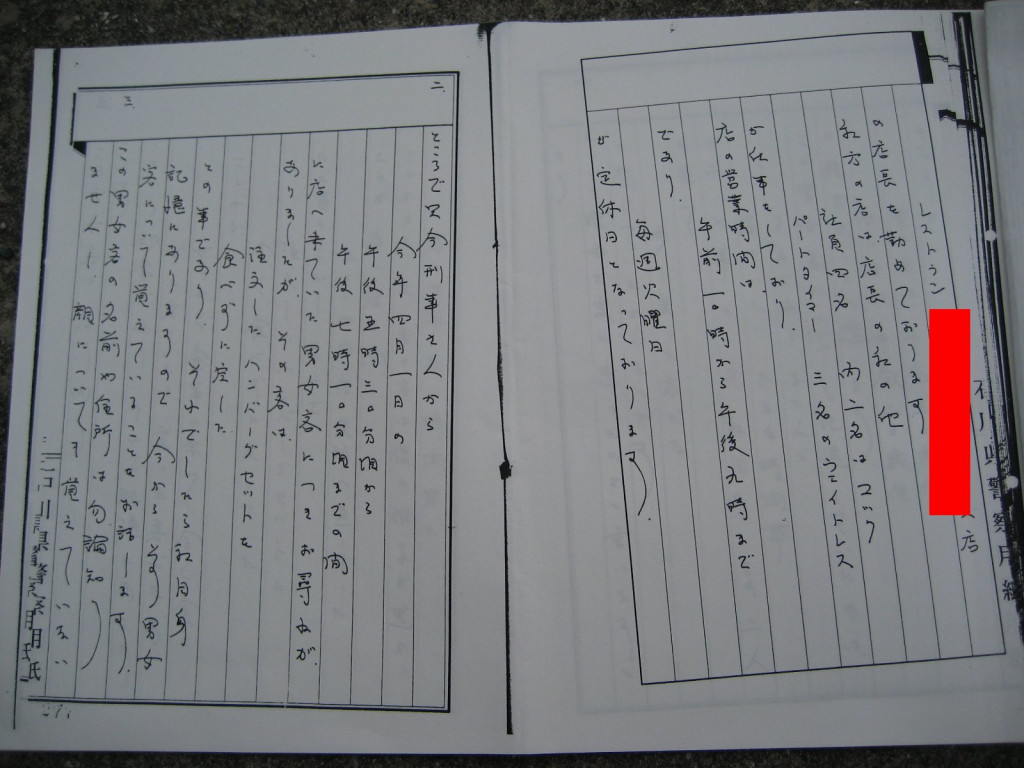 石川県警察用紙
レストラン
店
の店長を勤めております
私方の店は店長の私の他
社員四名 内二名はコック
パートタイマー 三名のウエイトレス
が仕事をしており、
店の営業時間は
午前一〇時から午後九時まで
であり、
毎週火曜日
が定休日となっております。
二
ところで只今刑事さんから
今年四月一日の
午後五時三〇分頃から
午後七時一〇分頃までの間
に店へ来ていた男女客につきお尋ねが
ありましたが、その客は
注文したハンバーグセットを
食べずに
との事であり、それでしたら私自身
記憶にありますので今からその男女
客について覚えていることをお話しします。
三
この男女客の名前や住所は勿論知り
ませんし、顔についても覚えていない
石川県警察用紙